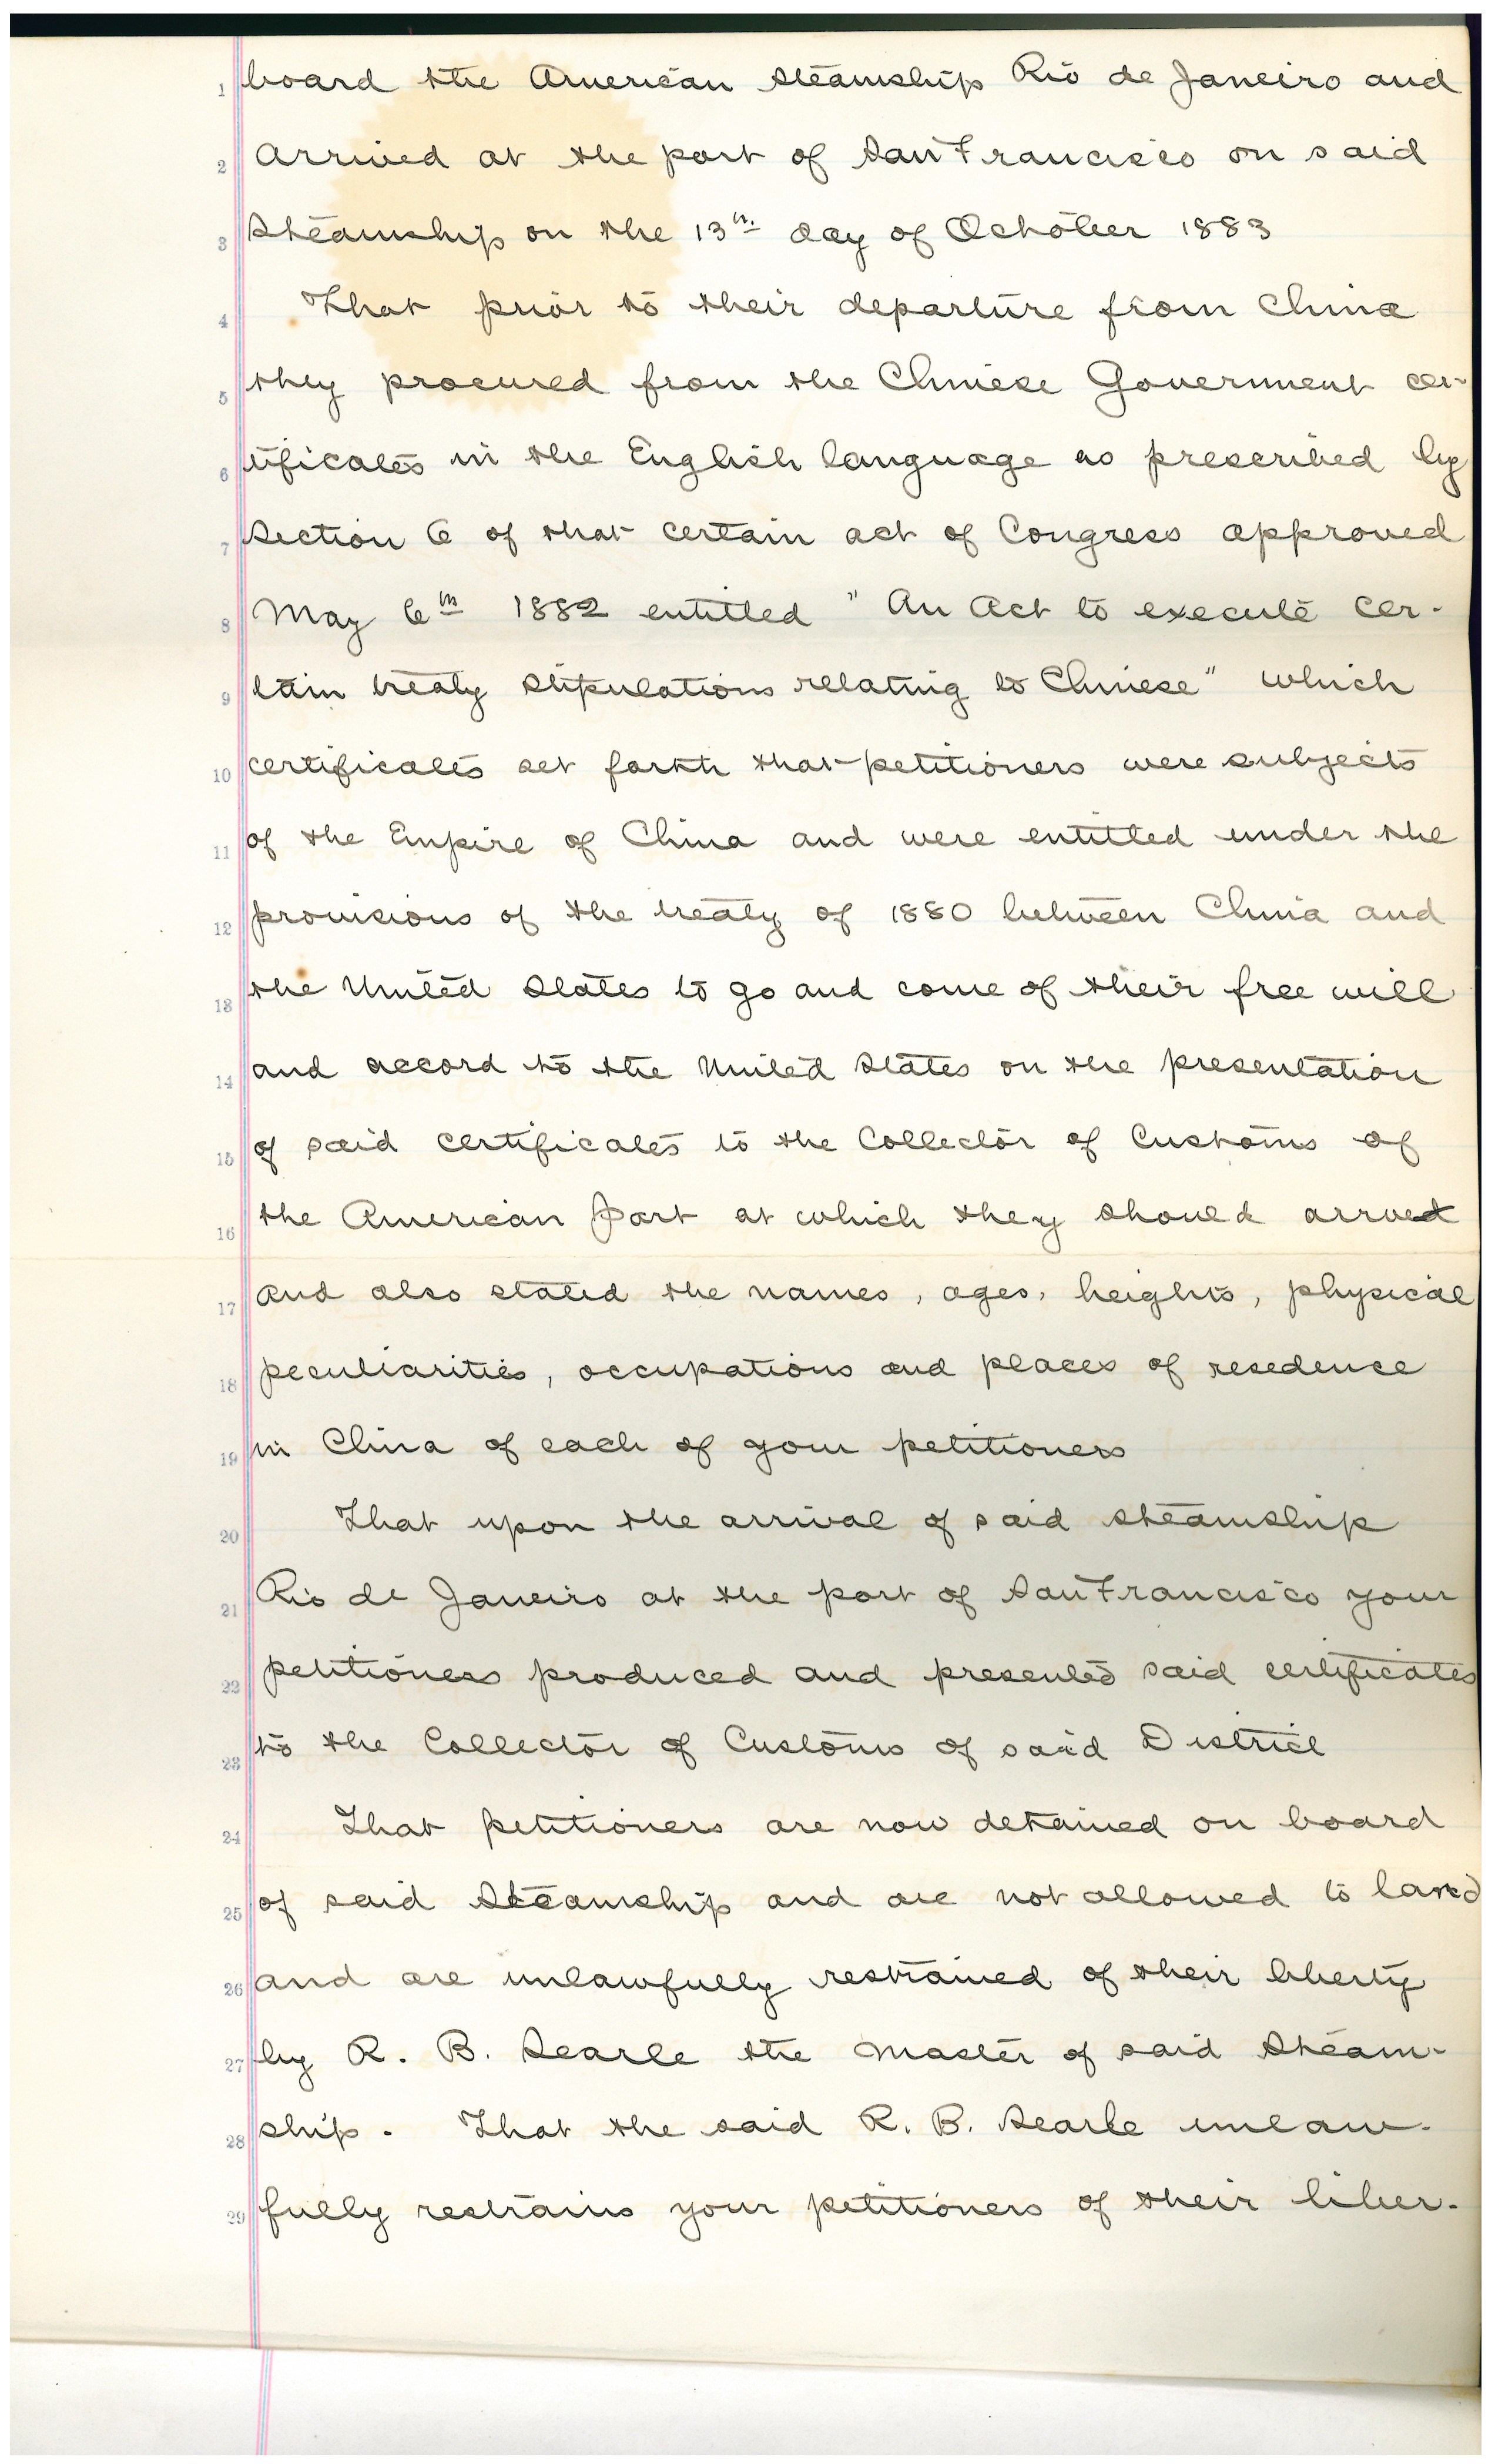 1 board the American steamship Rio de Janeiro and
2 arrived at the port of San Francisco on said
3 Steamship on the 13th day of October 1883
4 That prior to their departure from China
5 they procured from the Chinese Government cer-
6 tificates in the English language as prescribed by
7 Section 6 of that certain act of Congress approved
8 May 6th 1882 entitled "An Act to execute cer-
9 tain treaty stipulations relating to Chinese" which
10 certificates set forth that petitioners were subjects
11 of the Empire of China and were entitled under the
12 provisions of the treaty of 1880 between China and
13 the United States to go and come of their free will
14 and accord to the United States on the presentation
15 of said certificates to the Collector of Customs of
16 the American port at which they should arrive
17 and also stated the names, ages, heights, physical
18 peculiarities, occupations and places of resedence
19 in China of each of your petitioners
20 That upon the arrival of said steamship
21 Rio de Janeiro at the port of San Francisco your
22 petitioners produced and presented said certificates
23 to the Collector of Customs of said District
24 That petitioners are now detained on board
25 of said Steamship and are not allowed to land
26 and are unlawfully restrained of their liberty
27 by R. B. Searle the Master of said Steam-
28 ship. That the said R. B. Searle unlaw-
29 fully restrains your petitioners of their liber-